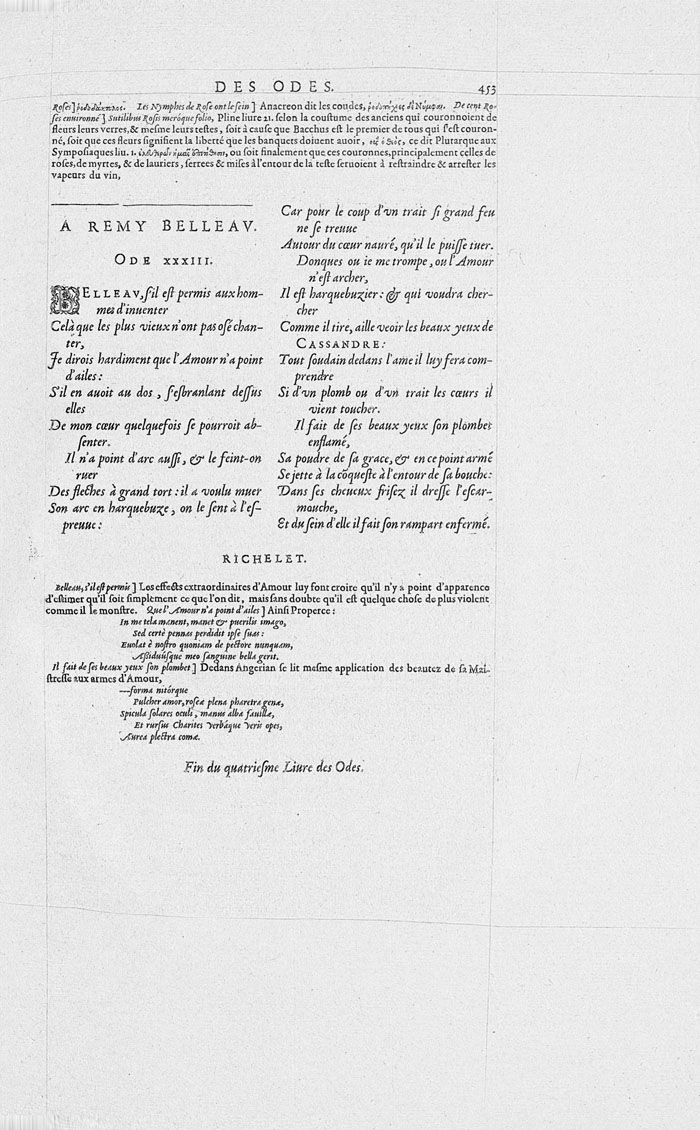 DES ODES. 453
Roses] ῥοδοδάκτυλος. Les Nymphes de Rose ont le sein] Anacreon dit les coudes, ῥοδοπήχεις δὲ Νύμφαι. De cent Ro-
ses enuironné] Sutilibus Rosis meróque folio, Pline liure 21. selon la coustume des anciens qui couronnoient de
fleurs leurs verres, & mesme leurs testes, soit à cause que Bacchus est le premier de tous qui s'est couron-
né, soit que ces fleurs signifient la liberté que les banquets doiuent auoir, ce dit Plutarque aux
Symposiaques liu. 1. ou soit finalement que ces couronnes, principalement celles de
roses, de myrtes, & de lauriers, serrees & mises à l'entour de la teste seruoient à restraindre & arrester les
vapeurs du vin,
A REMY BELLEAV.
ODE XXXIII.
BELLEAV, s'il est permis aux hom-
mes d'inuenter
Celà que les plus vieux n'ont pas osé chan-
ter,
Je dirois hardiment que l'Amour n'a point
d'ailes:
S'il en auoit au dos, s'esbranlant dessus
elles
De mon cœur quelquefois se pourroit ab-
senter.
Il n'a point d'arc aussi, & le feint-on
ruer
Des fleches à grand tort: il a voulu muer
Son arc en harquebuze, on le sent à l'es-
preuue:
Car pour le coup d'vn trait si grand feu
ne se treuue
Autour du cœur nauré, qu'il le puisse tuer.
Donques ou ie me trompe, ou l'Amour
n'est archer,
Il est harquebuzier: & qui voudra cher-
cher
Comme il tire, aille veoir les beaux yeux de
CASSANDRE:
Tout soudain dedans l'ame il luy fera com-
prendre
Si d'vn plomb ou d'vn trait les cœurs il
vient toucher.
Il fait de ses beaux yeux son plombet
enflamé,
Sa poudre de sa grace, & en ce point armé
Se jette à la cõqueste à l'entour de sa bouche:
Dans ses cheueux frisez il dresse l'escar-
mouche,
Et du sein d'elle il fait son rampart enfermé.
RICHELET.
Belleau, s'il est permis] Les effects extraordinaires d'Amour luy font croire qu'il n'y a point d'apparence
d'estimer qu'il soit simplement ce que l'on dit, mais sans doubte qu'il est quelque chose de plus violent
comme il le monstre. Que l'Amour n'a point d'ailes] Ainsi Properce:
In me tela manent, manet & puerilis imago,
Sed certè pennas perdidit ipse suas:
Euolat è nostro quoniam de pectore nunquam,
Assiduúsque meo sanguine bella gerit.
Il fait de ses beaux yeux son plombet] Dedans Angerian se lit mesme application des beautez de sa Mai-
stresse aux armes d'Amour,
---forma nitórque
Pulcher amor, roseæ plena pharetra genæ,
Spicula solares oculi, manus alba fauillæ,
Et rursus Charites verbáque veris opes,
Aurea plectra comæ.
Fin du quatriesme Liure des Odes.